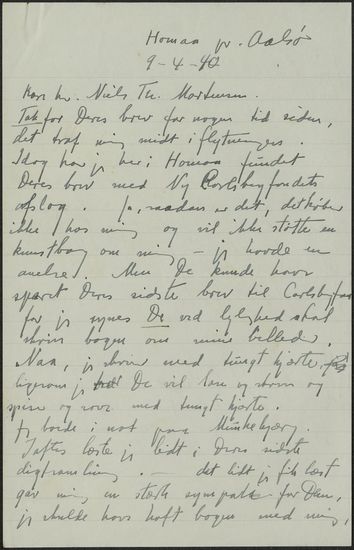 Homaa pr. Aalsø
9-4-40
Kære hr. Niels Th. Mortensen.
Tak for Deres brev for nogen tid siden,
det traf mig midt i flytningen.
Idag har jeg her i Homaa fundet
Deres brev med Ny Carlsbergfondets
afslag. Ja, saadan er det, det
ikke hos mig og vil ikke støtte en
kunstbog om mig – jeg havde en
anelse. Men De kunde have
sparet Deres sidste brev til Carlsbergfon
for jeg synes De ved lejlighed skal
skrive bogen om mine billeder.
Naa, jeg skriver med tungt hjerte,
ligesom jeg De vil læse og skrive og
spise og sove med tungt hjerte.
Jeg boede i nat paa Munkebjerg.
Iaftes læste jeg lidt i Deres sidste
digtsamling. – det lidt jeg fik læst
gav mig en stærk sympati for Dem,
jeg skulde have haft bogen med mig,